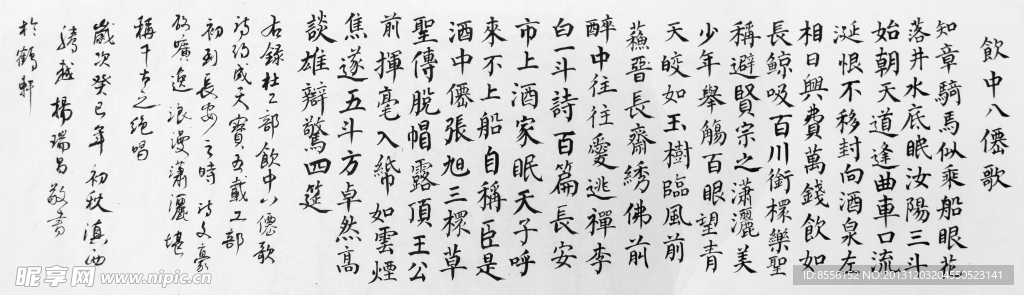 飲中八僊歌
知章騎馬似乘船眼花
落井水底眠汝陽三斗
始朝天道逢曲車口流
涎恨不移封向酒泉左
相日興費萬錢飲如
長鯨吸百川銜杯樂聖
稱避賢宗之瀟灑美
少年舉觴百眼望青
天皎如玉樹臨風前
蘇晉長齋綉佛前
醉中往往愛逃禪李
白一斗詩百篇長安
市上酒家眠天子呼
來不上船自稱臣是
酒中僊張旭三杯草
聖傳脱帽露頂王公
前揮毫入紙如雲煙
焦遂五斗方卓然高
談雄辯驚四筵
右録杜工部飲中八僊歌
詩約成天寶五載工部
初到長安之時詩文豪
放曠逸浪漫瀟灑堪
稱千古之絶唱
歲次癸巳年初秋滇西
騰越楊瑞昌敬書
於鶴軒
昵图网 www.nipic.cn
ID:8556152 NO:20131203204550523141